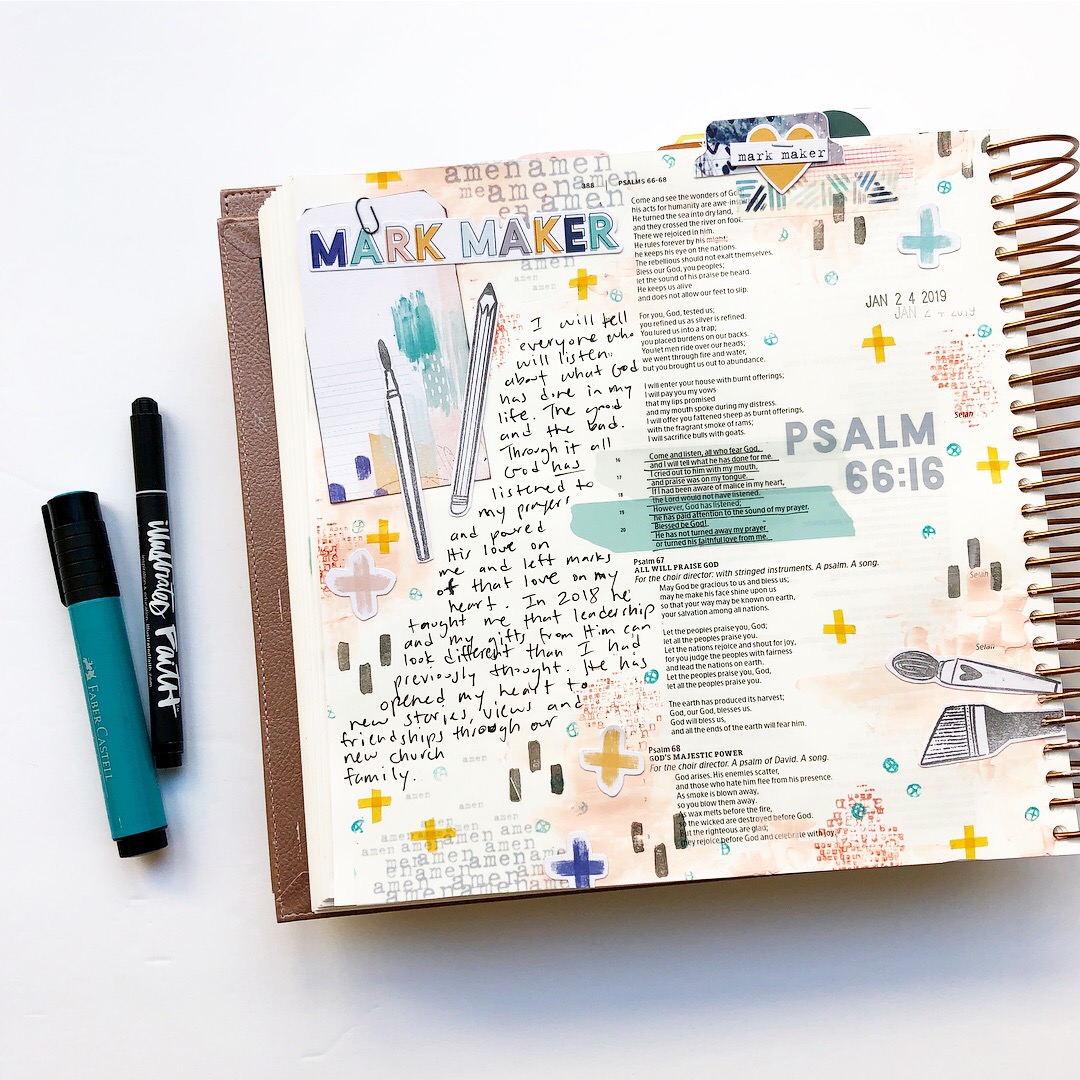 amenamen
meamenamen
en amen
amen
amen amen
MARK MAKER
I will tell
everyone who
will listen
about what God
has done in my
life. The good
and the bad.
Through it all
God has
listened to
my prayers
and poured
His love on
me and left marks
of that love on my
heart. In 2018 he
taught me that leadership
and my gifts from Him can
look different than I had
previously thought. He has
opened my heart to
new stories, views and
friendships through our
new church
family.
amen amen
amen amen ame
amen amen
amen amen
amenamen
mark maker
388 PSALMS 66-68
Come and see the wonders of
his acts for humanity are
He turned the sea into dry land,
and they crossed the river on foot.
There we rejoiced in him.
He rules forever by his might;
he keeps his eye on the nations.
The rebellious should not exalt themselves.
Bless our God, you peoples;
let the sound of his praise be heard.
He keeps us alive
and does not allow our feet to slip.
For you, God, tested us;
you refined us as silver is refined.
You lured us into a trap;
you placed burdens on our backs.
You let men ride over our heads;
we went through fire and water,
but you brought us out to abundance.
I will enter your house with burnt offerings;
I will pay you my vows
that my lips promised
and my mouth spoke during my distress.
I will offer you fattened sheep as burnt offerings,
with the fragrant smoke of rams;
I will sacrifice bulls with goats. Selah
16 Come and listen, all who fear God,
and I will tell what he has done for me.
17 I cried out to him with my mouth,
and praise was on my tongue.
18 If I had been aware of malice in my heart,
the Lord would not have listened.
19 However, God has listened;
he has paid attention to the sound of my prayer.
20 Blessed be God!
He has not turned away my prayer
or turned his faithful love from me.
Psalm 67
ALL WILL PRAISE GOD
For the choir director: with stringed instruments. A psalm. A song.
May God be gracious to us and bless us;
may he make his face shine upon us Selah
so that your way may be known on earth,
your salvation among all nations.
Let the peoples praise you, God;
let all the peoples praise you.
Let the nations rejoice and shout for joy,
for you judge the peoples with fairness
and lead the nations on earth. Selah
Let the peoples praise you, God,
let all the peoples praise you.
The earth has produced its harvest;
God, our God, blesses us.
God will bless us,
and all the ends of the earth will fear him.
Psalm 68
GOD'S MAJESTIC POWER
For the choir director. A psalm of David. A song.
God arises. His enemies scatter,
and those who hate him flee from his presence.
As smoke is blown away,
so you blow them away.
As wax melts before the fire,
so the wicked are destroyed before God.
But the righteous are glad;
they rejoice before God and celebrate with joy.
JAN 24 2019
JAN 24 2019
PSALM
66:16
illustrated Faith
FABER-CASTELL